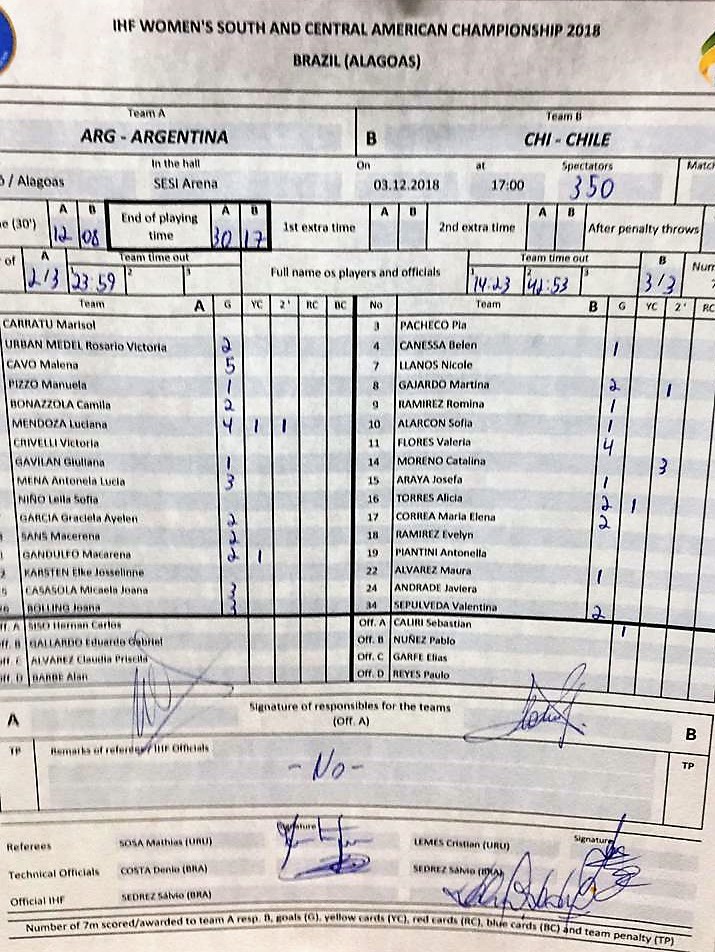 IHF WOMEN'S SOUTH AND CENTRAL AMERICAN CHAMPIONSHIP 2018
BRAZIL (ALAGOAS)
Team A Team B
ARG - ARGENTINA B CHI - CHILE
In the hall On at Spectators Matc
/ Alagoas SESI Arena 03.12.2018 17:00 350
e (30') A B 12 08 End of playing time A B 30 17 1st extra time A B 2nd extra time A B After penalty throws
of A 2/3 Team time out 1 23:59 2 3 Full name os players and officials Team time out 1 14:23 2 42:53 3 B 3/3 Num
Team A G YC 2' RC BC No Team B G YC 2' RC
CARRATU Marisol 3 PACHECO Pia
URBAN MEDEL Rosario Victoria 2 4 CANESSA Belen 1
CAVO Malena 5 7 LLANOS Nicole
PIZZO Manuela 1 8 GAJARDO Martina 2 1
BONAZZOLA Camila 2 9 RAMIREZ Romina 1
MENDOZA Luciana 4 1 1 10 ALARCON Sofia 1
CRIVELLI Victoria 11 FLORES Valeria 4
GAVILAN Giuliana 1 14 MORENO Catalina 3
MENA Antonela Lucia 3 15 ARAYA Josefa 1
NIÑO Leila Sofia 16 TORRES Alicia 2 1
GARCIA Graciela Ayelen 2 17 CORREA Maria Elena 2
SANS Macerena 2 18 RAMIREZ Evelyn
GANDULFO Macarena 2 1 19 PIANTINI Antonella
KARSTEN Elke Josselinne 22 ALVAREZ Maura 1
CASASOLA Micaela Joana 3 24 ANDRADE Javiera
BOLLING Joana 3 34 SEPULVEDA Valentina 2
Off. A SISO Hernan Carlos Off. A CALIRI Sebastian 1
Off. B GALLARDO Eduardo Gabriel Off. B NUÑEZ Pablo
Off. C ALVAREZ Claudia Priscila Off. C GARFE Elias
Off. D BARBE Alan Off. D REYES Paulo
A Signature of responsibles for the teams B
(Off. A)
TP Remarks of referees/ IHF Officials TP
- No -
Referees SOSA Mathias (URU) Signature LEMES Cristian (URU) Signature
Technical Officials COSTA Denio (BRA) SEDREZ Sálvio (BRA)
Official IHF SEDREZ Sálvio (BRA)
Number of 7m scored/awarded to team A resp. B, goals (G), yellow cards (YC), red cards (RC), blue cards (BC) and team penalty (TP)